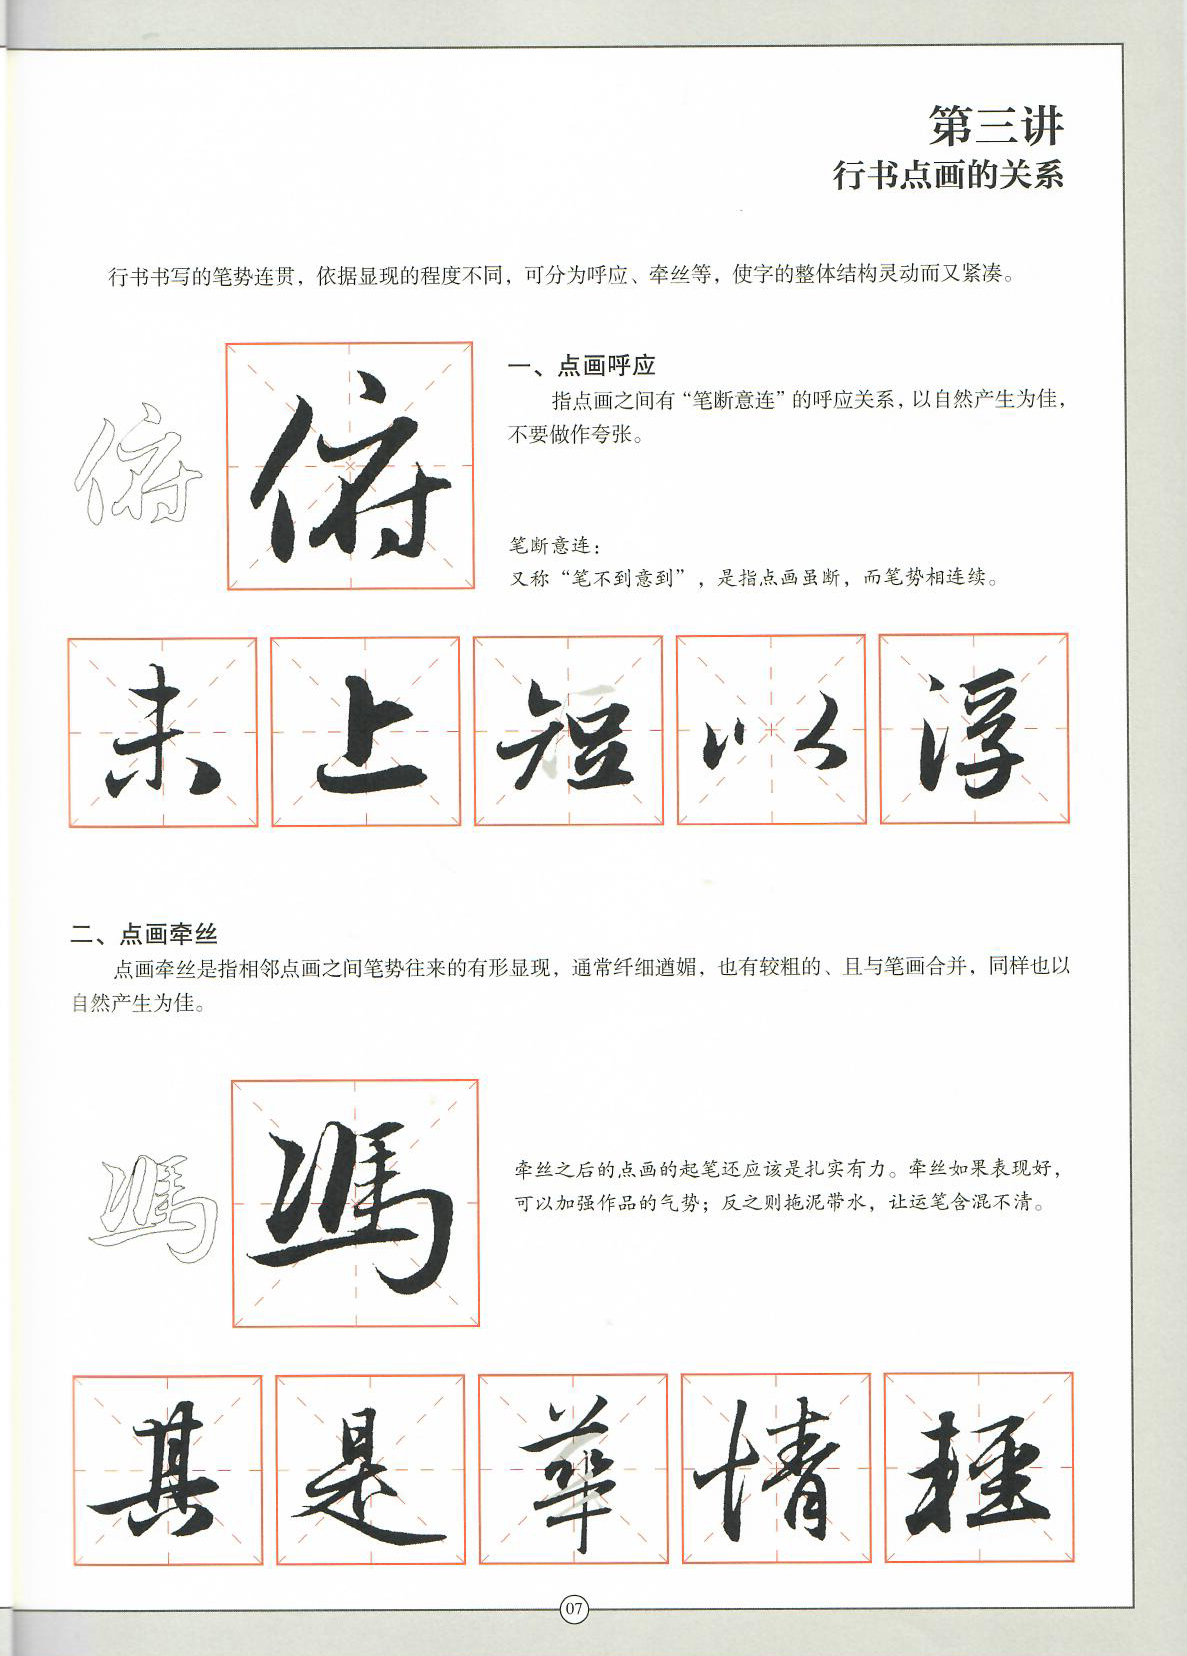 第三讲
行书点画的关系
行书书写的笔势连贯，依据显现的程度不同，可分为呼应、牵丝等，使字的整体结构灵动而又紧凑。
俯 俯
一、点画呼应
指点画之间有“笔断意连”的呼应关系，以自然产生为佳，
不要做作夸张。
笔断意连：
又称“笔不到意到”，是指点画虽断，而笔势相连续。
未 上 短 以 浮
二、点画牵丝
点画牵丝是指相邻点画之间笔势往来的有形显现，通常纤细遒媚，也有较粗的、且与笔画合并，同样也以
自然产生为佳。
馮 馮
牵丝之后的点画的起笔还应该是扎实有力。牵丝如果表现好，
可以加强作品的气势；反之则拖泥带水，让运笔含混不清。
其 是 華 情 輕
07